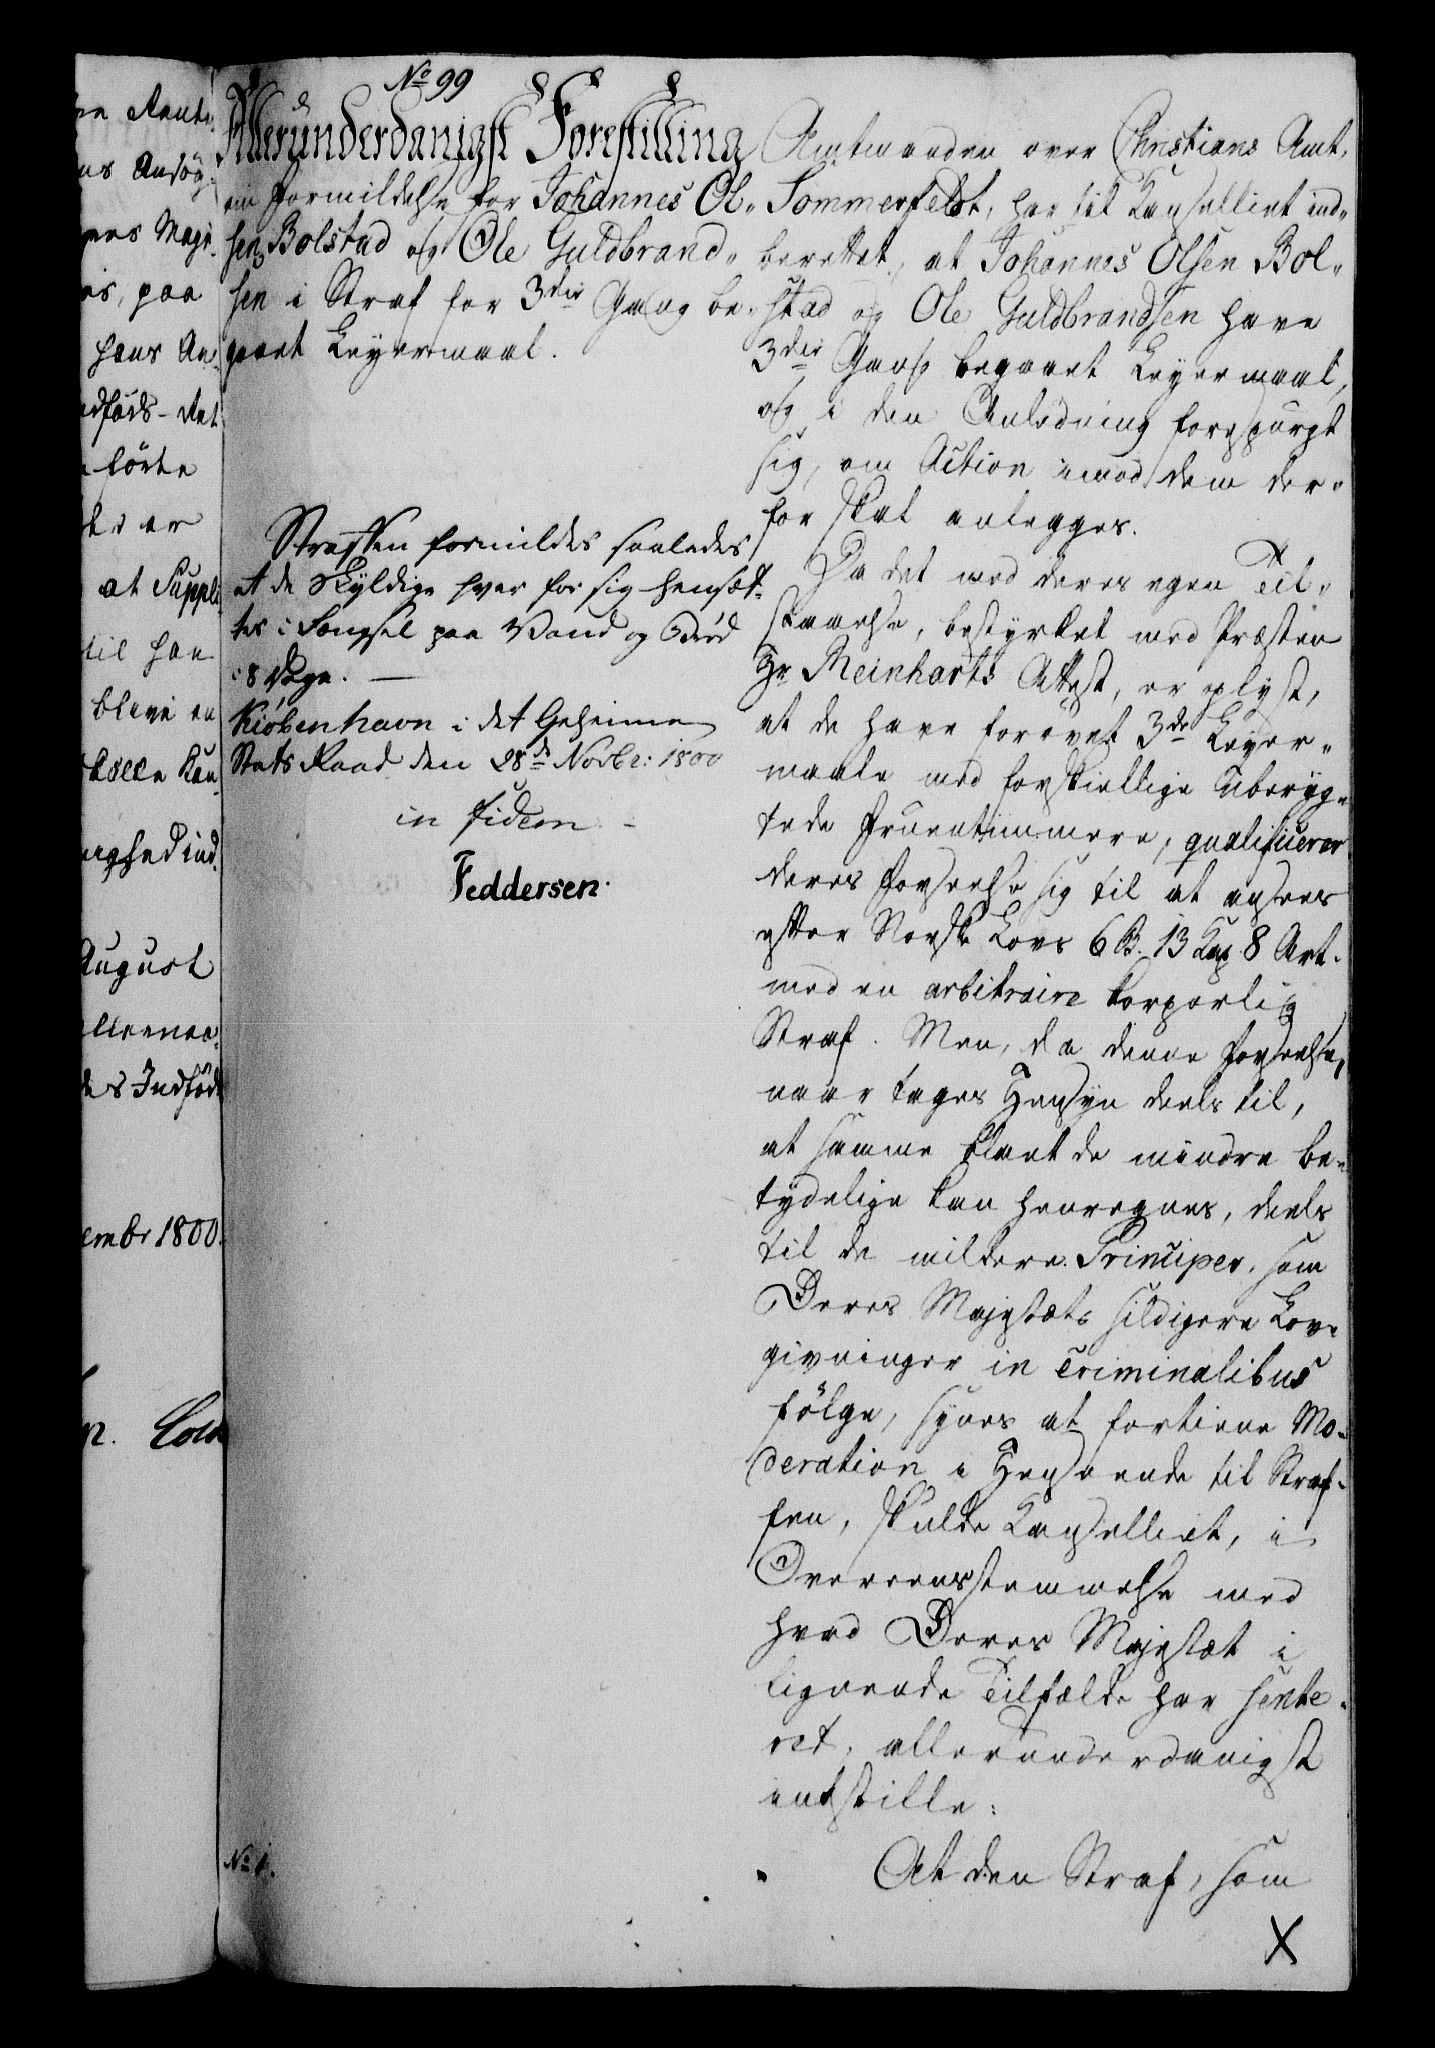 No 99
Allerunderdanigst Forestilling
om Formildelse for Johannes Ol-
sen Bolstad og Ole Guldbrand-
sen i Straf for 3die Gang be-
gaaet Leyermaal.
Straffen formildes saaledes
at de Skyldige hver for sig hensæt-
tes i Fængsel paa Vand og Brød
i 8 Dage. —
Kiøbenhavn i det Geheime
Stats Raad den 28de Novbr: 1800
in fidem
Feddersen.
No 1.
Amtmanden over Christians Amt,
Sommerfeldt, har til Kancelliet ind-
berettet, at Johannes Olsen Bol-
stad og Ole Guldbrandsen have
3die Gang begaaet Leyermaal,
og i den Anledning forespurgt
sig, om Action imod dem der-
for skal anlegges.
Da det med deres egen Til-
staaelse, bestyrket med Præsten
Hr Reinharts Attest, er oplyst,
at de have forøvet 3de Leyer-
maale med forskiellige uberyg-
tede Fruentimmere, qualificerer
deres Forseelse sig til at ansees
efter Norske Lovs 6 B. 13 Cap 8 Art.
med en arbitraire korporlig
Straf. Men, da denne Forseelse,
naar tages Hensyn deels til,
at samme blant de mindre be-
tydelige kan henregnes, deels
til de mildere Principer, som
Deres Majestæts sildigere Lov-
givninger in Criminalibus
følge, synes at fortiene Mo-
deration i Henseende til Straf-
fen, skulde Kancelliet, i
Overeensstemmelse med
hvad Deres Majestæt i
lignende Tilfælde har sente-
ret, allerunderdanigst
indstille:
At den Straf, som
X